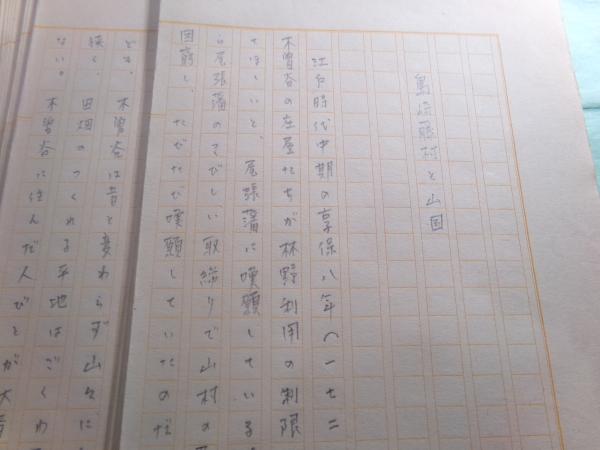 島崎藤村と山国
江戸時代中期の享保八年（一七二
木曽谷の庄屋たちが林野利用の制限
てほしいと、尾張藩に嘆願している
ら尾張藩のきびしい取締りで山村の
困窮し、たびたび嘆願していたのだ
とも、木曽谷は昔と変わらず山々に
狭く、田畑のつくれる平地はごくわ
ない。木曽谷に住んだ人びとが大